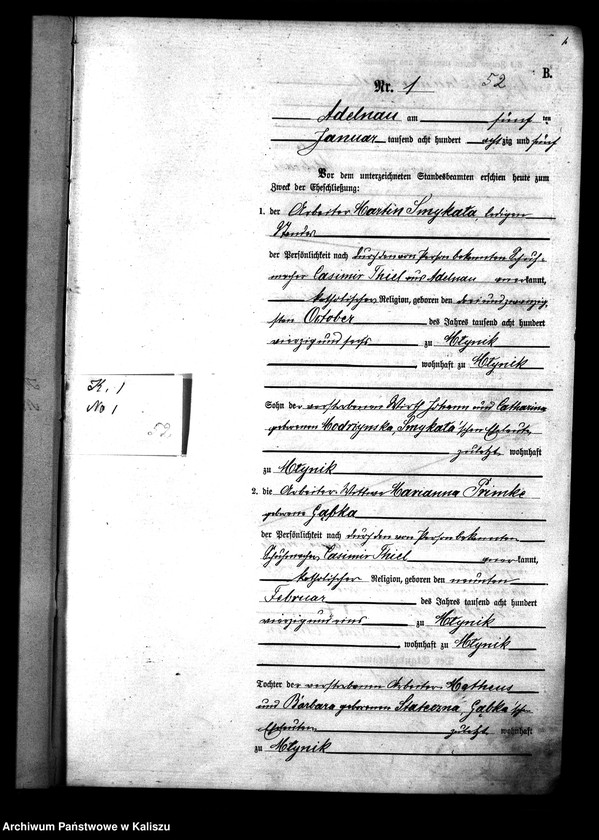 B.
Nr. 1
52
Adelnau am fünf ten
Januar tausend acht hundert achtzig und fünf
Vor dem unterzeichneten Standesbeamten erschien heute zum
Zweck der Eheschließung:
1. der Arbeiter Martin Smykata, ledigen
Standes
der Persönlichkeit nach durch den von Person bekannten Schuh-
macher Casimir Thiel aus Adelnau anerkannt,
katholischer Religion, geboren den dreiundzwanzig-
sten October des Jahres tausend acht hundert
vierzig und sechs zu Młynik
, wohnhaft zu Młynik
K. 1
No 1
52
Sohn der verstorbenen Wirth Johann und Catharina
geborenen Modrzynska, Smykata'schen Eheleute
zuletzt wohnhaft
zu Młynik
2. die Arbeiter-Wittwe Marianna Primke
geborene Gąbka
der Persönlichkeit nach durch den von Person bekannten
Schuhmacher Casimir Thiel anerkannt,
katholischer Religion, geboren den neunten
Februar des Jahres tausend acht hundert
vierzig und eins zu Młynik
wohnhaft zu Młynik
Tochter der verstorbenen Arbeiter Matheus
und Barbara geborenen Gąbka'schen
Eheleuten zuletzt wohnhaft
zu Młynik
Archiwum Państwowe w Kaliszu